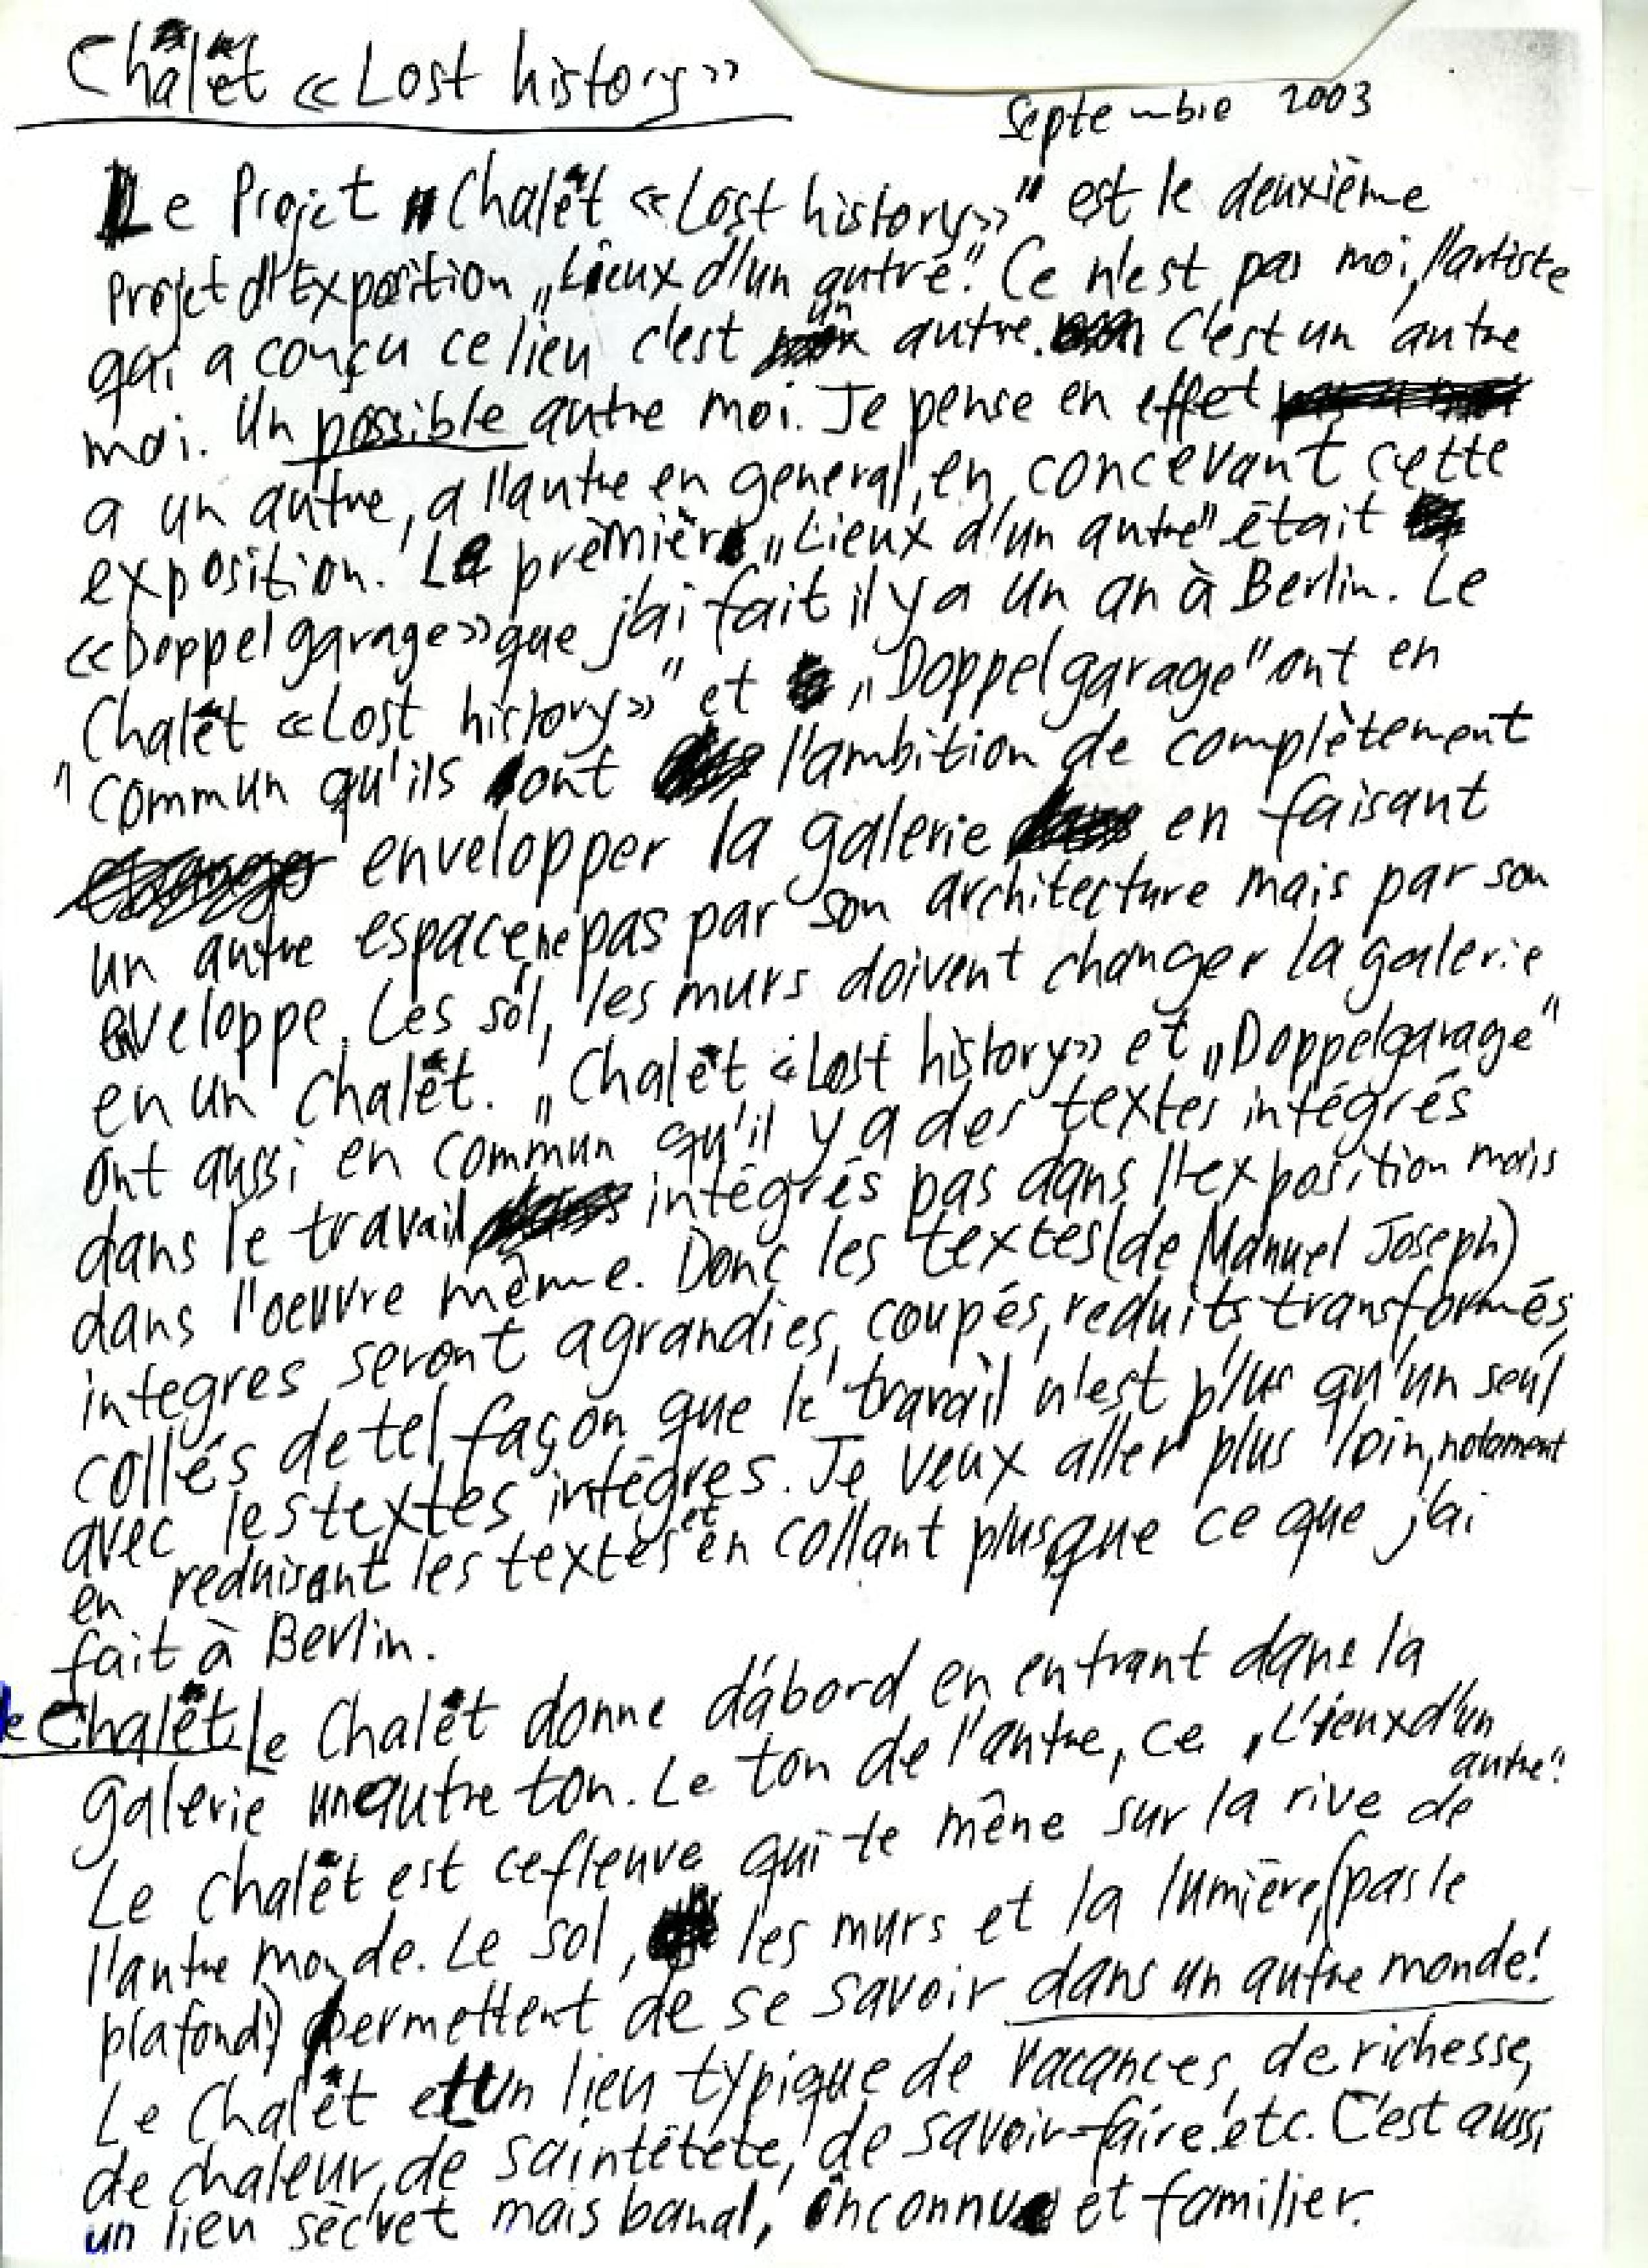 Chalet « Lost history »
Septembre 2003
Le Projet „Chalet « Lost history »" est le deuxième
Projet d'Exposition „Lieux d'un autre". Ce n'est pas moi, l'artiste
qui a conçu ce lieu c'est un autre. C'est un autre
moi. Un possible autre moi. Je pense en effet
a un autre, a l'autre en general, en concevant cette
exposition. Le premier „Lieux d'un autre" était
«Doppelgarage» que j'ai fait il y a un an à Berlin. Le
Chalet «Lost history»" et „Doppelgarage" ont en
" commun qu'ils ont l'ambition de complètement
envelopper la galerie en faisant
un autre espace, ne pas par son architecture mais par son
enveloppe. Les sol, les murs doivent changer la galerie
en un chalet. „Chalet «Lost history» et „Doppelgarage"
ont aussi en commun qu'il y a des textes intégrés
dans le travail intégrés pas dans l'exposition mais
dans l'oeuvre même. Donc les textes (de Manuel Joseph)
integres seront agrandies, coupés, reduits, transformés,
collés de tel façon que le travail n'est plus qu'un seul
avec les textes intégres. Je veux aller plus loin, notament
en reduisant les textes et en collant plus que ce que j'ai
fait à Berlin.
le Chalet. Le Chalet donne d'abord en entrant dans la
galerie un autre ton. Le ton de l'autre, ce „Lieux d'un
autre".
Le Chalet est ce fleuve qui te mêne sur la rive de
l'autre monde. Le sol, les murs et la lumière, (pas le
plafond) permettent de se savoir dans un autre monde!
Le Chalet est un lieu typique de vacances, de richesse,
de chaleur, de saintêteté, de savoir-faire. etc. C'est aussi
un lieu sècret mais banal, inconnu et familier.